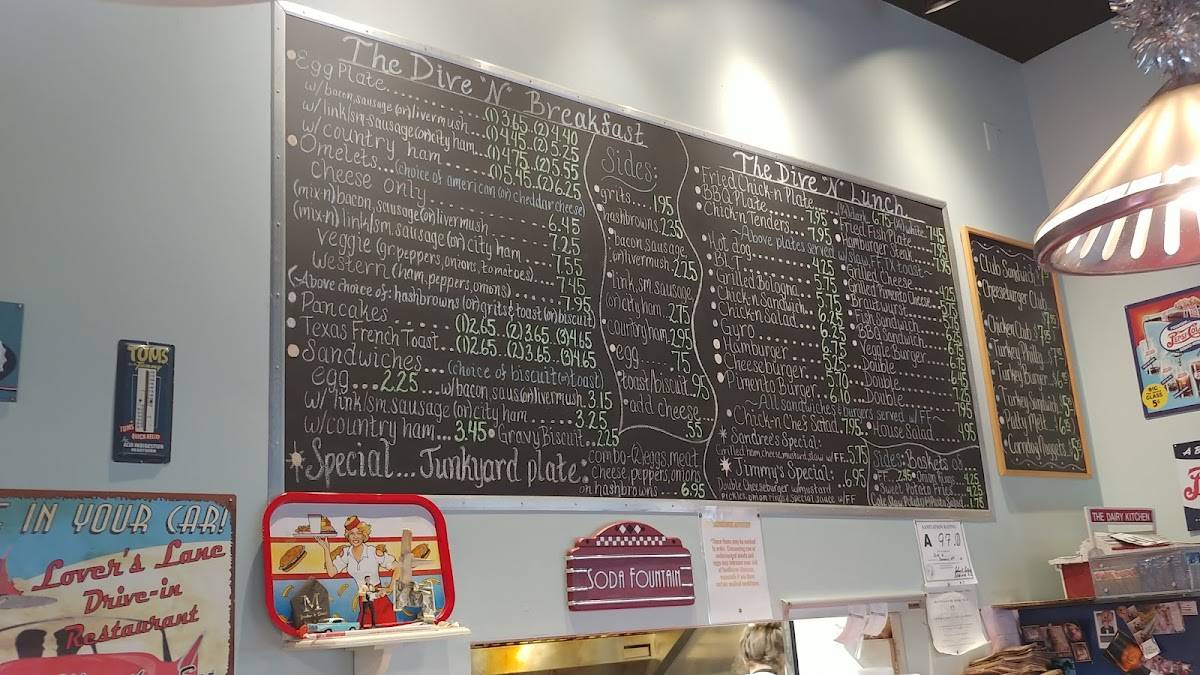 The Dive "N" Breakfast
Egg Plate.......(1) 3.65..(2) 4.40
w/bacon,sausage (or) livermush...(1) 4.45..(2) 5.25
w/link/sm.sausage (or) city ham...(1) 4.75..(2) 5.55
w/country ham......(1) 5.45..(2) 6.25
Omelets...(choice of american (or) cheddar cheese)
cheese only......6.45
(mix-n) bacon,sausage (or) livermush......7.25
(mix-n) link/sm.sausage (or) city ham....7.55
veggie (gr.peppers, onions, tomatoes)....7.45
western (ham, peppers, onions).......7.95
(Above choice of: hashbrowns (or) grits & toast (or) biscuit)
Pancakes......(1) 2.65...(2) 3.65..(3) 4.65
Texas French Toast...(1) 2.65...(2) 3.65..(3) 4.65
Sandwiches...(choice of biscuit (or) toast)
egg...2.25 w/bacon,saus (or) livermush. 3.15
w/link/sm.sausage (or) city ham......3.25
w/country ham...3.45 Gravy Biscuit...2.25
Special... Junkyard plate:
combo-2 eggs, meat,
cheese, peppers, onions
on hashbrowns....6.95
Sides:
grits....1.95
hashbrowns.2.35
bacon,sausage
(or) livermush..2.25
link,sm.sausage
(or) city ham..2.75
country ham.2.95
egg.....75
toast/biscuit.95
add cheese
.55
The Dive "N" Lunch
Fried Chick-n Plate.....(dk) dark 6.75 (w) white 7.45
BBQ Plate......7.95 Fried Fish Plate....7.95
Chick-n Tenders...7.95 Hamburger Steak...7.95
~Above plates served w/slaw, FF, TX toast~
Hot dog........4.25 Grilled Cheese
BLT........5.75 Grilled Pimento Cheese
Grilled Bologna...5.75 Bratwurst
Chick-n Sandwich....6.75 Fish Sandwich
Chick-n Salad....6.25 BBQ Sandwich
Gyro Veggie Burger
Hamburger Double
Cheeseburger Double
Pimento Burger Double
~All sandwiches & burgers served w/FF~
Chick-n Chef Salad 7.95 House Salad....4.95
Sandree's Special:
Grilled ham, cheese, mustard, slaw w/FF..5.75
Jimmy's Special:..6.95
Double Cheeseburger w/mustard
pickles, onion rings & special sauce w/FF
Sides: Baskets
FF...2.95 Onion Rings 4.25
Sweet Potato Fries
Club Sandwich
Cheeseburger Club
Chicken Club
Turkey Philly
Turkey Burger
Turkey Sandwich
Patty Melt
Corn Dog Nuggets
TOMS
IN YOUR CAR!
Lover's Lane
Drive-in
Restaurant
M
SODA FOUNTAIN
SANITATION RATING
A 97.0
THE DAIRY KITCHEN
Pepsi-Cola
BIG
GLASS
5¢